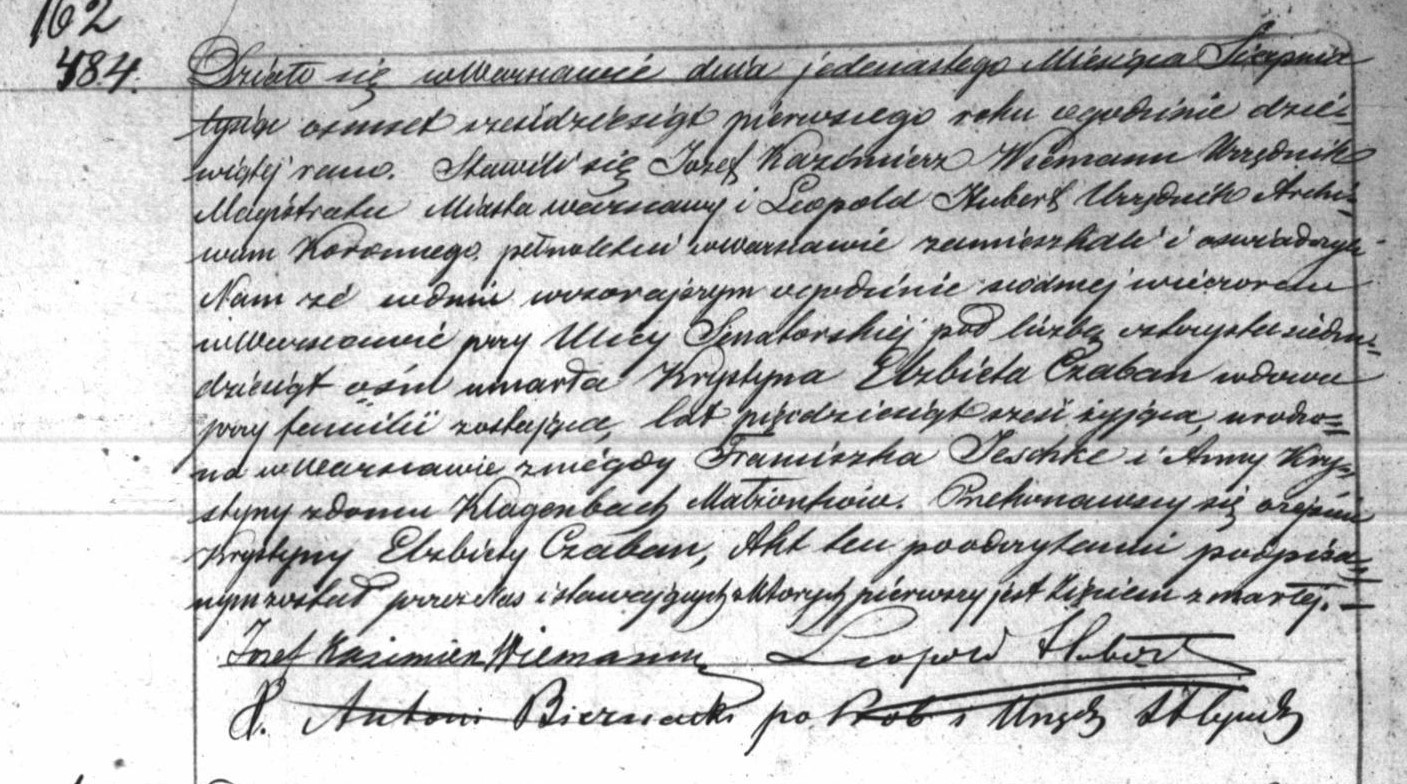 162
484.
Działo się w Warszawie dnia jedenastego Miesiąca Sierpnia
tysiąc osmset sześidziesiąt pierwszego roku o godzinie dzie-
wiątéj rano. Stawili się Jozef Kazimierz Wiemann Urzędnik
Magistratu Miasta Warszawy i Leopold Hubert Urzędnik Archi-
wum Koronnego. pełnoletni w Warszawie zamieszkali i oswiadczyli
Nam że w dniu wczorajszym o godzinie siódmej wieczorem
w Warszawie przy Ulicy Senatorskiéj pod liczbą czterysta siedm-
dziesiąt ośm umarła Krystyna Elzbieta Czaban wdowa
przy familii zostająca, lat pięcdziesiąt sześć żyjąca, urodzo-
na w Warszawie z niegdy Franciszka Jeschke i Anny Kry-
styny z domu Klagenbach Małżonków. Przekonawszy się o zejściu
Krystyny Elzbiety Czaban, Akt ten po odczytaniu podpisa-
nym został przez Nas i stawających z których pierwszy jest Zięciem zmarłej. —
Jozef Kazimierz Wiemann Leopold Hubert
X. Antoni Biernacki po Prob i Urzęd St Cyw